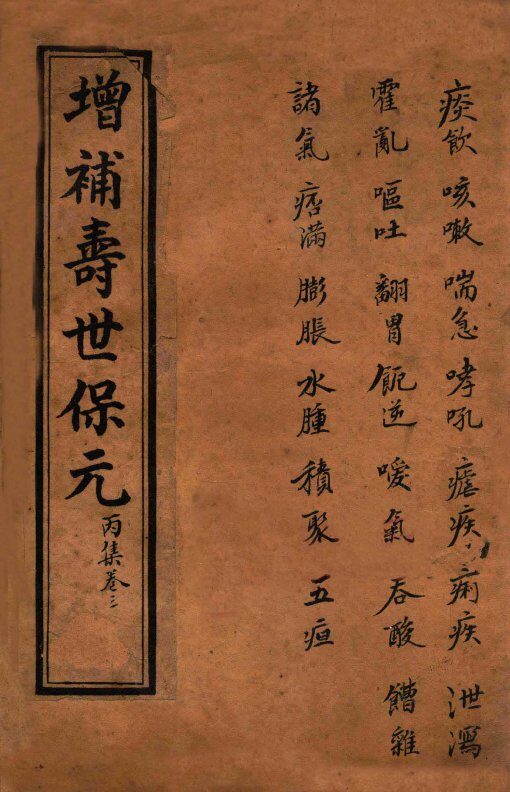 痰飲 咳嗽 喘急 哮吼 瘧疾 痢疾 泄瀉
霍亂 嘔吐 翻胃 呃逆 噯氣 吞酸 饐雜
諸氣 痞滿 膨脹 水腫 積聚 五疸
增補壽世保元
丙集卷三